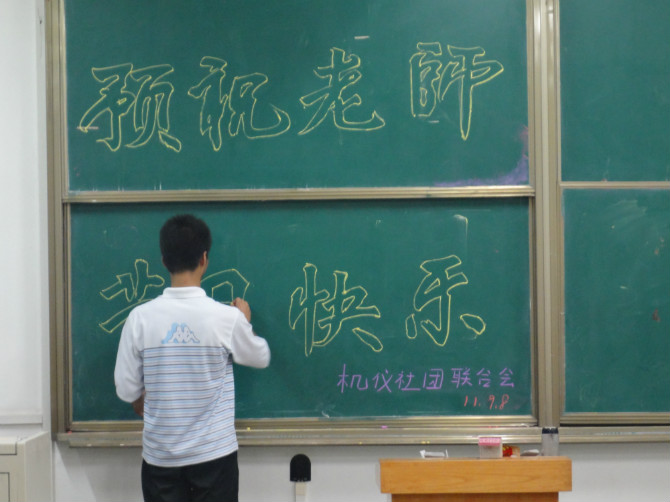 预祝老師
节日快乐
机仪社团联合会
11.9.8